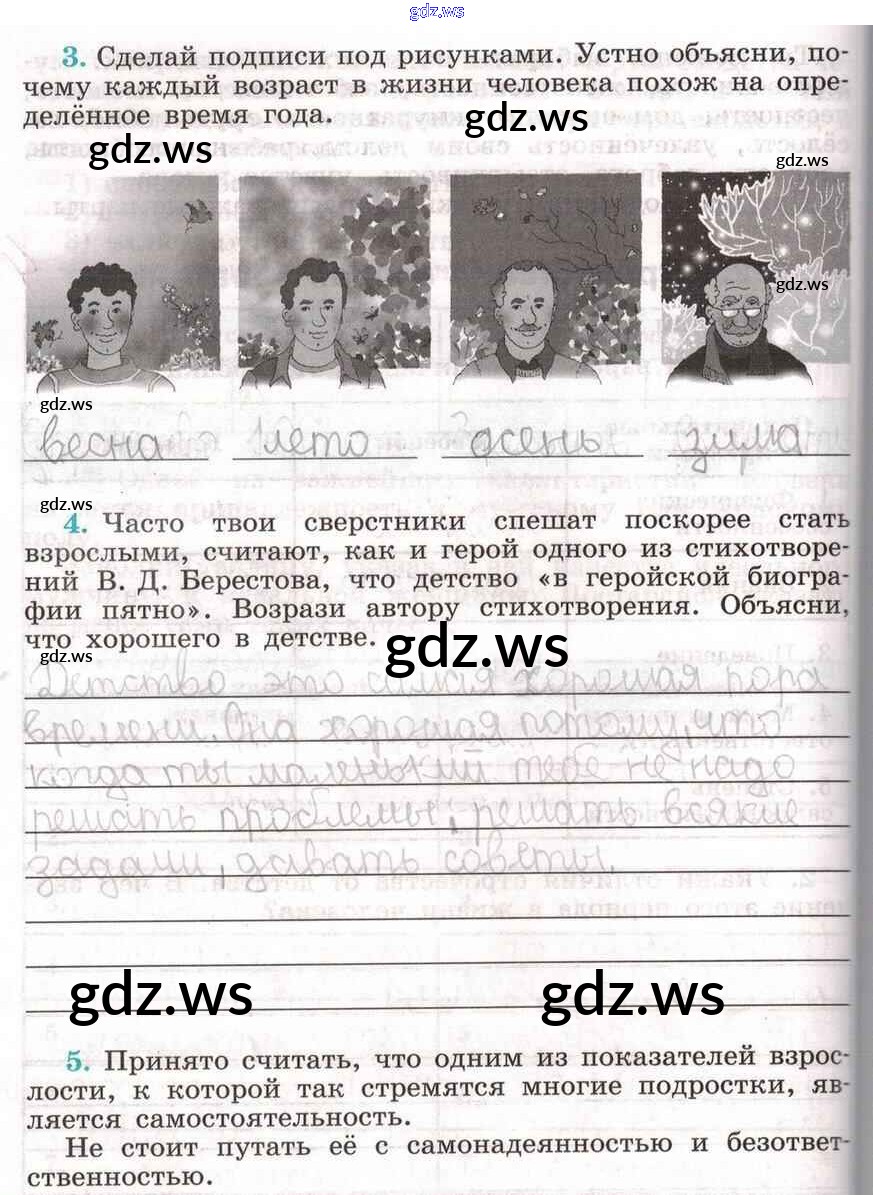 gdz.ws
3. Сделай подписи под рисунками. Устно объясни, по-
чему каждый возраст в жизни человека похож на опре-
делённое время года.
gdz.ws
gdz.ws
gdz.ws
gdz.ws
gdz.ws
весна лето осень зима
gdz.ws
4. Часто твои сверстники спешат поскорее стать
взрослыми, считают, как и герой одного из стихотворе-
ний В. Д. Берестова, что детство «в геройской биогра-
фии пятно». Возрази автору стихотворения. Объясни,
что хорошего в детстве.
gdz.ws
gdz.ws
Детство это самая хорошая пора
времени. Она хорошая потому, что
когда ты маленький тебе не надо
решать проблемы, решать всякие
задачи, давать советы.
gdz.ws gdz.ws
5. Принято считать, что одним из показателей взрос-
лости, к которой так стремятся многие подростки, яв-
ляется самостоятельность.
Не стоит путать её с самонадеянностью и безответ-
ственностью.